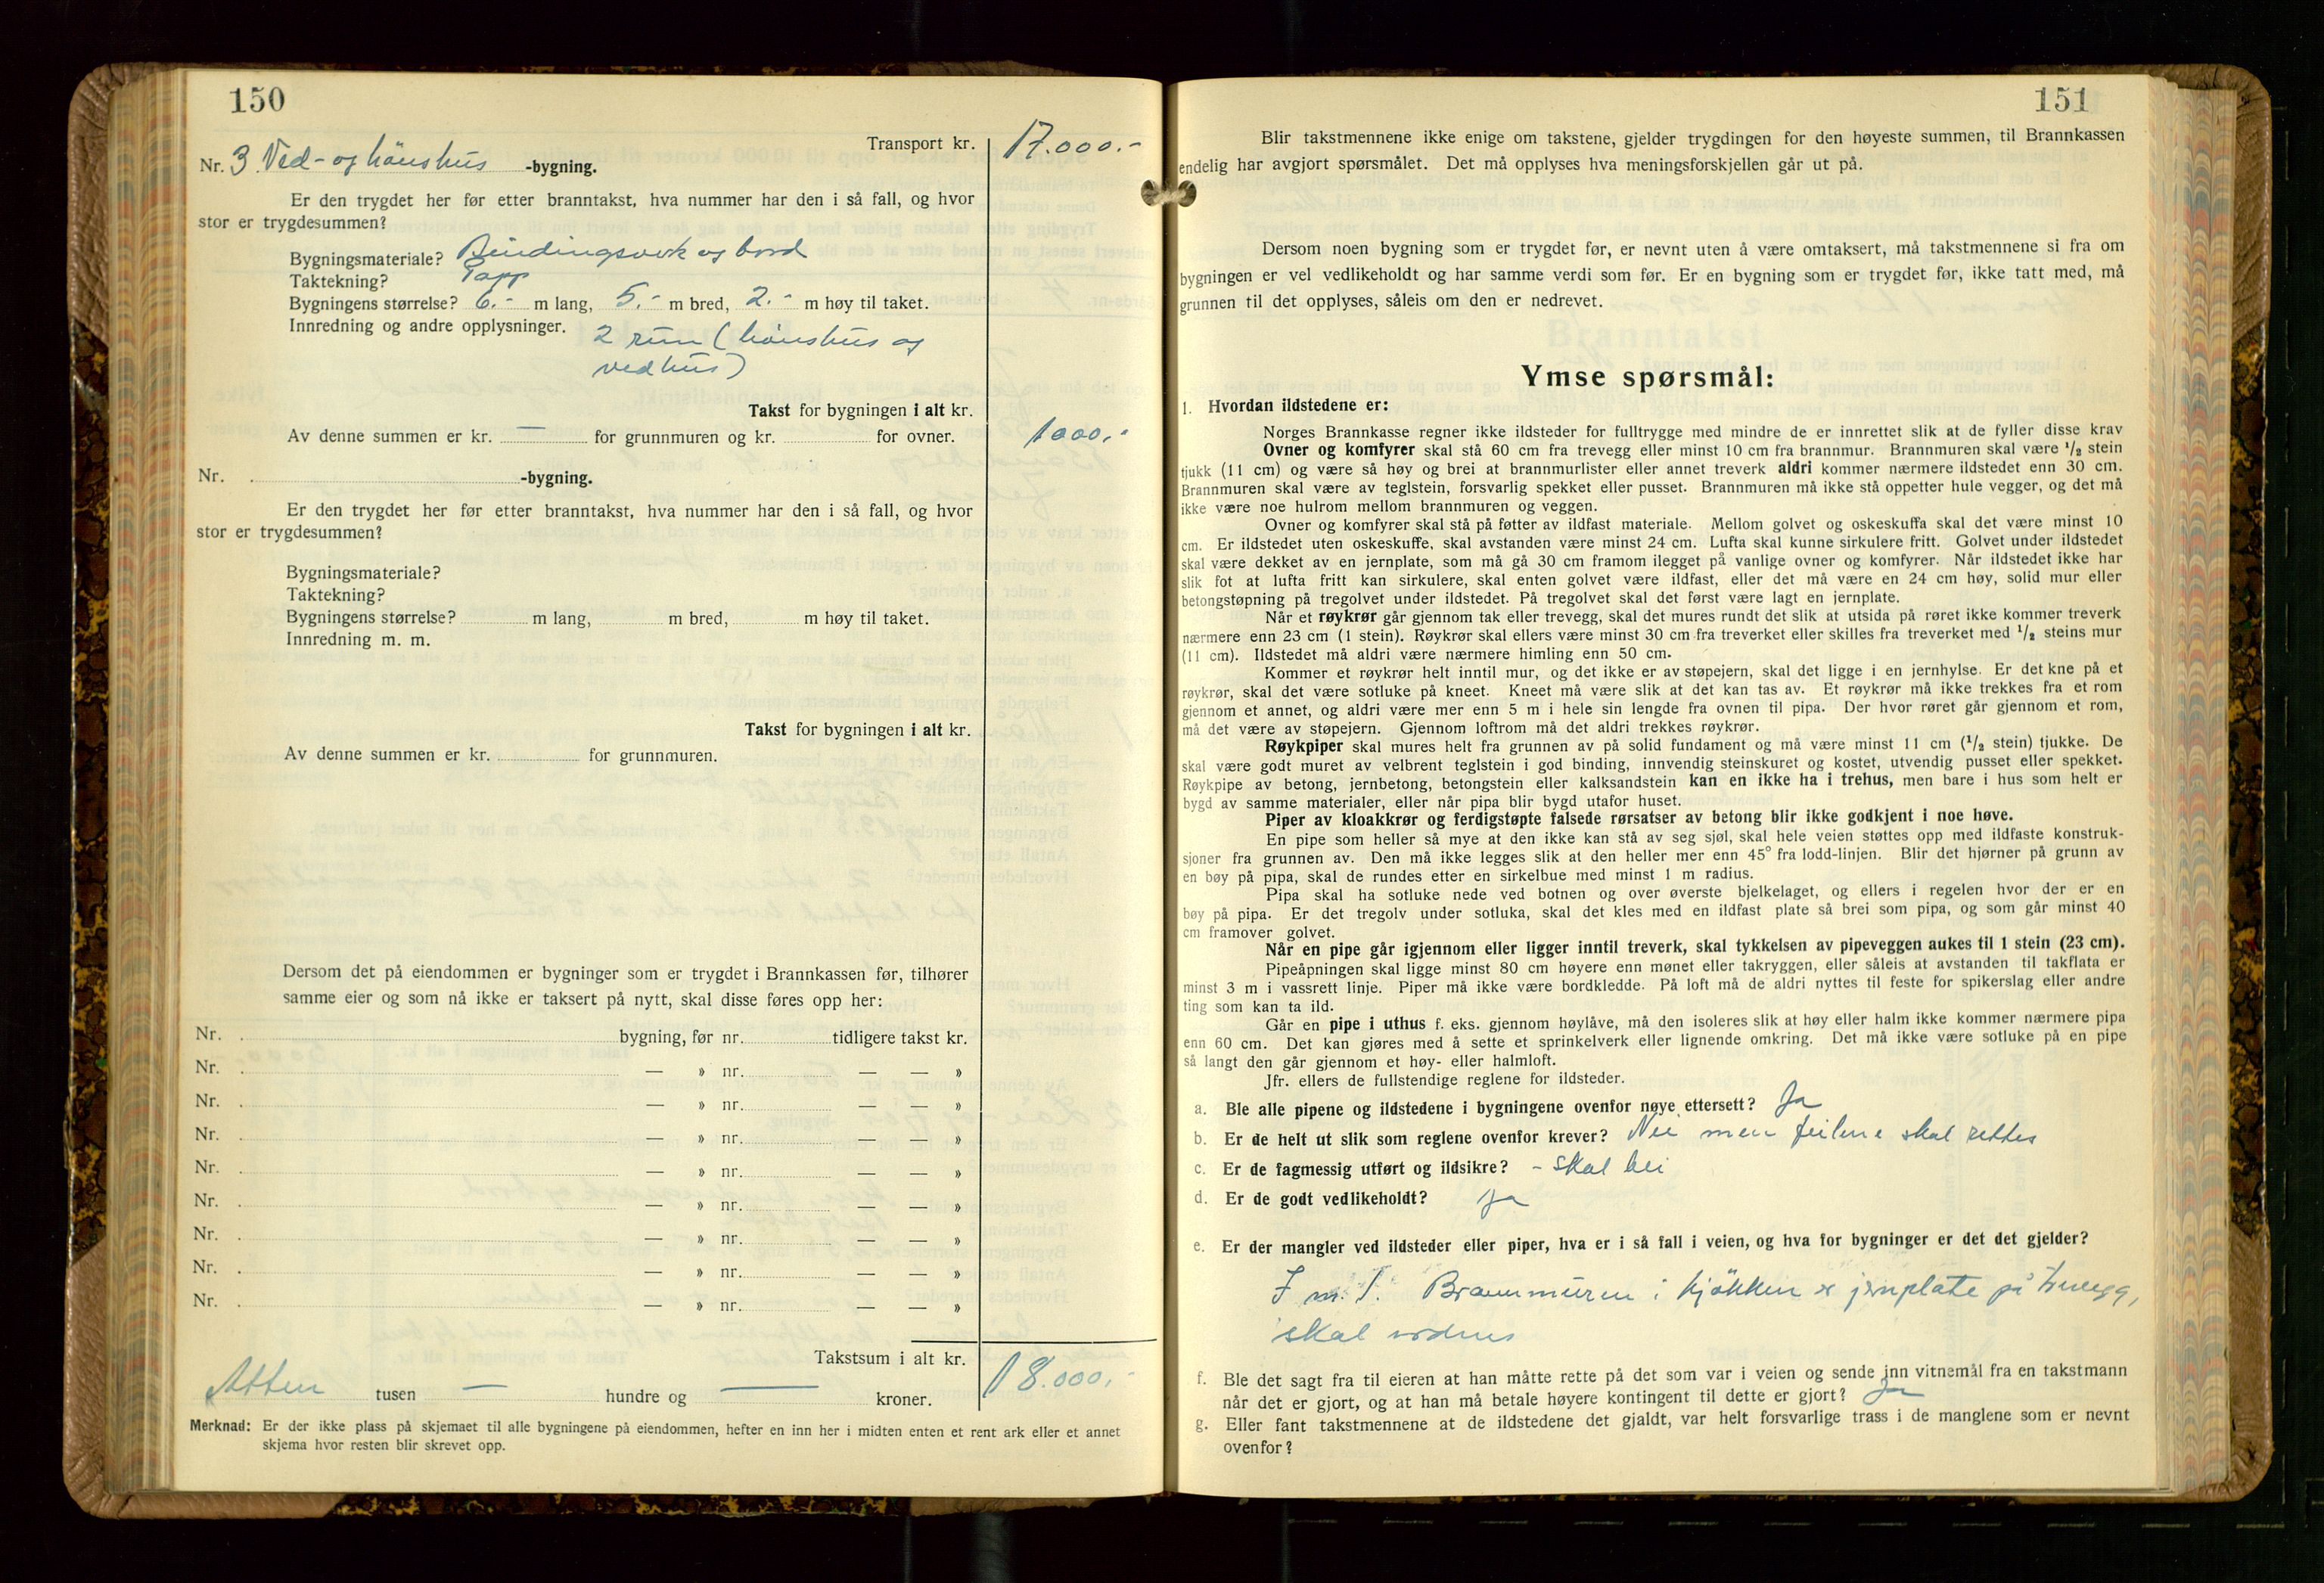 150
Transport kr. 17.000.-
Nr. 3. Ved- og hönshus -bygning.
Er den trygdet her før etter branntakst, hva nummer har den i så fall, og hvor
stor er trygdesummen?
Bygningsmateriale? Bindingsverk og bord
Taktekning? Papp
Bygningens størrelse? 6.- m lang, 5.- m bred, 2.- m høy til taket.
Innredning og andre opplysninger. 2 rum (hönshus og
vedhus)
Takst for bygningen i alt kr.
Av denne summen er kr. — for grunnmuren og kr. for ovner. 1000,-
Nr. -bygning.
Er den trygdet her før etter branntakst, hva nummer har den i så fall, og hvor
stor er trygdesummen?
Bygningsmateriale?
Taktekning?
Bygningens størrelse? m lang, m bred, m høy til taket.
Innredning m. m.
Takst for bygningen i alt kr.
Av denne summen er kr. for grunnmuren.
Dersom det på eiendommen er bygninger som er trygdet i Brannkassen før, tilhører
samme eier og som nå ikke er taksert på nytt, skal disse føres opp her:
Nr. bygning, før nr. tidligere takst kr.
Nr. — » nr. — — »
Nr. — » nr. — — »
Nr. — » nr. — — »
Nr. — » nr. — — »
Nr. — » nr. — — »
Nr. — » nr. — — »
Nr. — » nr. — — »
Nr. — » nr. — — »
Takstsum i alt kr. 18.000,-
Atten tusen — hundre og — kroner.
Merknad: Er der ikke plass på skjemaet til alle bygningene på eiendommen, hefter en inn her i midten enten et rent ark eller et annet
skjema hvor resten blir skrevet opp.
151
Blir takstmennene ikke enige om takstene, gjelder trygdingen for den høyeste summen, til Brannkassen
endelig har avgjort spørsmålet. Det må opplyses hva meningsforskjellen går ut på.
Dersom noen bygning som er trygdet før, er nevnt uten å være omtaksert, må takstmennene si fra om
bygningen er vel vedlikeholdt og har samme verdi som før. Er en bygning som er trygdet før, ikke tatt med, må
grunnen til det opplyses, såleis om den er nedrevet.
Ymse spørsmål:
1. Hvordan ildstedene er:
Norges Brannkasse regner ikke ildsteder for fulltrygge med mindre de er innrettet slik at de fyller disse krav
Ovner og komfyrer skal stå 60 cm fra trevegg eller minst 10 cm fra brannmur. Brannmuren skal være 1/2 stein
tjukk (11 cm) og være så høy og brei at brannmurlister eller annet treverk aldri kommer nærmere ildstedet enn 30 cm.
Brannmuren skal være av teglstein, forsvarlig spekket eller pusset. Brannmuren må ikke stå oppetter hule vegger, og det må
ikke være noe hulrom mellom brannmuren og veggen.
Ovner og komfyrer skal stå på føtter av ildfast materiale. Mellom golvet og oskeskuffa skal det være minst 10
cm. Er ildstedet uten oskeskuffe, skal avstanden være minst 24 cm. Lufta skal kunne sirkulere fritt. Golvet under ildstedet
skal være dekket av en jernplate, som må gå 30 cm framom ilegget på vanlige ovner og komfyrer. Når ildstedet ikke har
slik fot at lufta fritt kan sirkulere, skal enten golvet være ildfast, eller det må være en 24 cm høy, solid mur eller
betongstøpning på tregolvet under ildstedet. På tregolvet skal det først være lagt en jernplate.
Når et røykrør går gjennom tak eller trevegg, skal det mures rundt det slik at utsida på røret ikke kommer treverk
nærmere enn 23 cm (1 stein). Røykrør skal ellers være minst 30 cm fra treverket eller skilles fra treverket med 1/2 steins mur
(11 cm). Ildstedet må aldri være nærmere himling enn 50 cm.
Kommer et røykrør helt inntil mur, og det ikke er av støpejern, skal det ligge i en jernhylse. Er det kne på et
røykrør, skal det være sotluke på kneet. Kneet må være slik at det kan tas av. Et røykrør må ikke trekkes fra et rom
gjennom et annet, og aldri være mer enn 5 m i hele sin lengde fra ovnen til pipa. Der hvor røret går gjennom et rom,
må det være av støpejern. Gjennom loftrom må det aldri trekkes røykrør.
Røykpiper skal mures helt fra grunnen av på solid fundament og må være minst 11 cm (1/2 stein) tjukke. De
skal være godt muret av velbrent teglstein i god binding, innvendig steinskuret og kostet, utvendig pusset eller spekket.
Røykpipe av betong, jernbetong, betongstein eller kalksandstein kan en ikke ha i trehus, men bare i hus som helt er
bygd av samme materialer, eller når pipa blir bygd utafor huset.
Piper av kloakkrør og ferdigstøpte falsede rørsatser av betong blir ikke godkjent i noe høve.
En pipe som heller så mye at den ikke kan stå av seg sjøl, skal hele veien støttes opp med ildfaste konstruk-
sjoner fra grunnen av. Den må ikke legges slik at den heller mer enn 45° fra lodd-linjen. Blir det hjørner på grunn av
en bøy på pipa, skal de rundes etter en sirkelbue med minst 1 m radius.
Pipa skal ha sotluke nede ved botnen og over øverste bjelkelaget, og ellers i regelen hvor der er en
bøy på pipa. Er det tregolv under sotluka, skal det kles med en ildfast plate så brei som pipa, og som går minst 40
cm framover golvet.
Når en pipe går igjennom eller ligger inntil treverk, skal tykkelsen av pipeveggen aukes til 1 stein (23 cm).
Pipeåpningen skal ligge minst 80 cm høyere enn mønet eller takryggen, eller såleis at avstanden til takflata er
minst 3 m i vassrett linje. Piper må ikke være bordkledde. På loft må de aldri nyttes til feste for spikerslag eller andre
ting som kan ta ild.
Går en pipe i uthus f. eks. gjennom høylåve, må den isoleres slik at høy eller halm ikke kommer nærmere pipa
enn 60 cm. Det kan gjøres med å sette et sprinkelverk eller lignende omkring. Det må ikke være sotluke på en pipe
så langt den går gjennom et høy- eller halmloft.
Jfr. ellers de fullstendige reglene for ildsteder.
a. Ble alle pipene og ildstedene i bygningene ovenfor nøye ettersett? Ja
b. Er de helt ut slik som reglene ovenfor krever? Nei men feilene skal rettes
c. Er de fagmessig utført og ildsikre? - skal bli
d. Er de godt vedlikeholdt? Ja
e. Er der mangler ved ildsteder eller piper, hva er i så fall i veien, og hva for bygninger er det det gjelder?
I nr. 1. Brannmuren i kjökken er jernplate på trevegg,
skal ordnes
f. Ble det sagt fra til eieren at han måtte rette på det som var i veien og sende inn vitnemål fra en takstmann
når det er gjort, og at han må betale høyere kontingent til dette er gjort? Ja
g. Eller fant takstmennene at de ildstedene det gjaldt, var helt forsvarlige trass i de manglene som er nevnt
ovenfor?